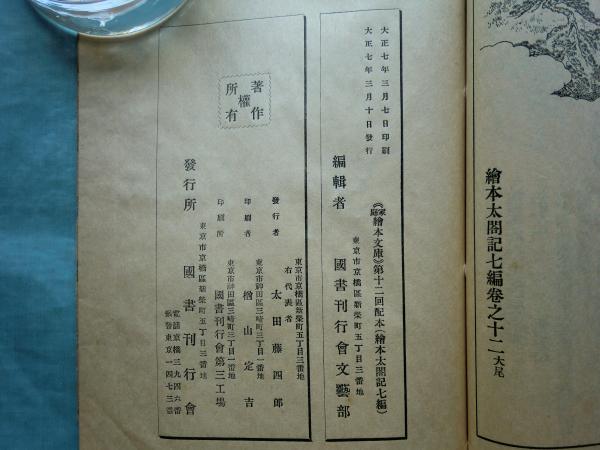 繪本太閤記七編卷之十二大尾
大正七年三月七日印刷
大正七年三月十日發行
《家庭繪本文庫》第十二回配本(繪本太閤記七編)
東京市京橋區新榮町五丁目三番地
編輯者 國書刊行會文藝部
著作權所有
東京市京橋區新榮町五丁目三番地
右代表者
發行者 太田藤四郎
東京市神田區三崎町三丁目一番地
印刷者 楢山定吉
東京市神田區三崎町三丁目一番地
印刷所 國書刊行會第三工場
東京市京橋區新榮町五丁目三番地
發行所 國書刊行會
電話京橋三九四六番
振替東京一四七三番